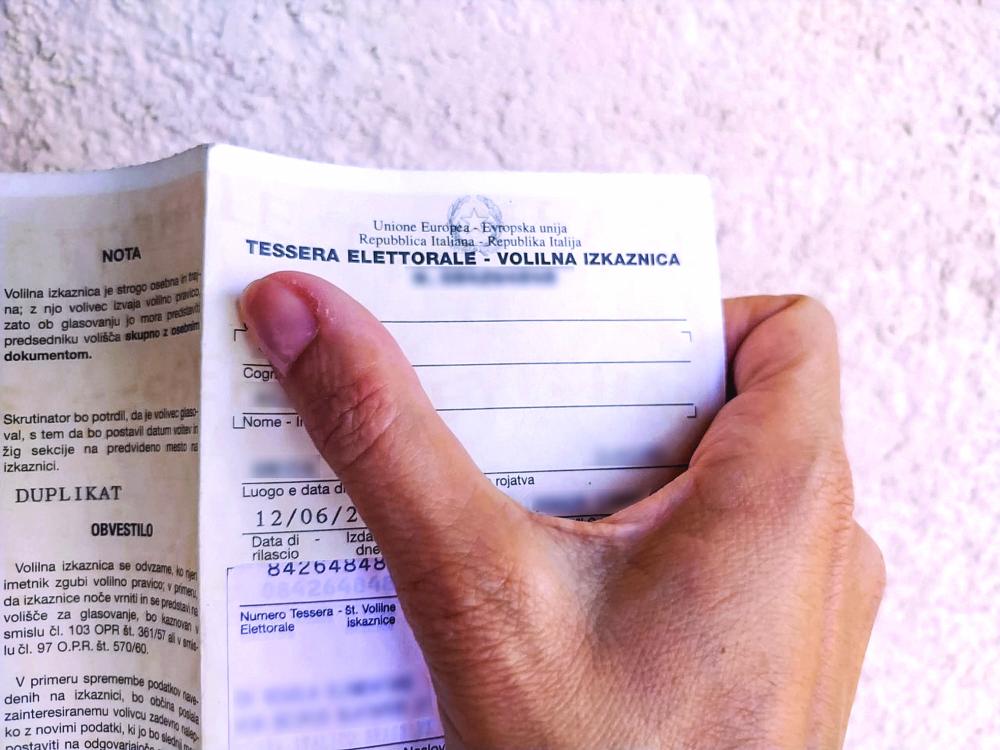 NOTA
Volilna izkaznica je strogo osebna in traj-
na; z njo volivec izvaja volilno pravico,
zato ob glasovanju jo mora predstaviti
predsedniku volišča skupno z osebnim
dokumentom.
Skrutinator bo potrdil, da je volivec glaso-
val, s tem da bo postavil datum volitev in
žig sekcije na predvideno mesto na
izkaznici.
DUPLIKAT
OBVESTILO
Volilna izkaznica se odvzame, ko njen
imetnik zgubi volilno pravico; v primeru,
da izkaznice noče vrniti in se predstavi na
volišče za glasovanje, bo kaznovan v
smislu čl. 103 OPR št. 361/57 ali v smis-
lu čl. 97 O.P.R. št. 570/60.
V primeru spremembe podatkov nave-
denih na izkaznici, bo občina poslala
zainteresiranemu volivcu zadevno nalep-
ko z novimi podatki, ki jo bo slednji
postaviti na
Unione Europea - Evropska unija
Repubblica Italiana - Republika Italija
TESSERA ELETTORALE - VOLILNA IZKAZNICA
Cogn
Nome - I
Luogo e data di rojstva
12/06/2
Data di - Izda
rilascio dne
84264848
Numero Tessera - št. Volilne
Elettorale iskaznice
Naslov